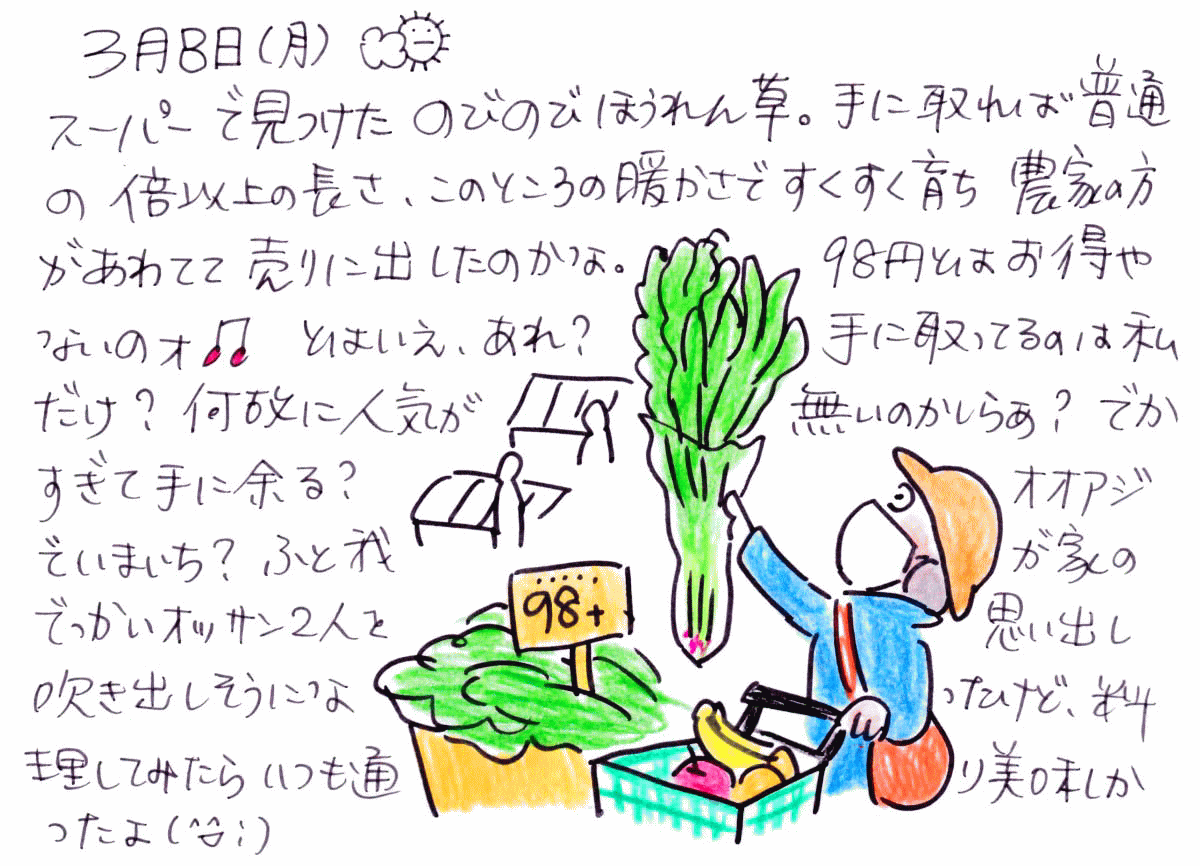 3月8日(月)
スーパーで見つけた のびのびほうれん草。手に取れば普通
の倍以上の長さ、このところの暖かさですくすく育ち 農家の方
があわてて売りに出したのかな。 98円とはお得や
ないのオ♫ とはいえ、あれ? 手に取ってるのは私
だけ? 何故に人気が 無いのかしらあ? でか
すぎて手に余る? オオアジ
でいまいち? ふと我 が家の
でっかいオッサン2人を 思い出し
吹き出しそうにな ったけど、料
理してみたらいつも通 り美味しか
ったよ(^^;)
98+